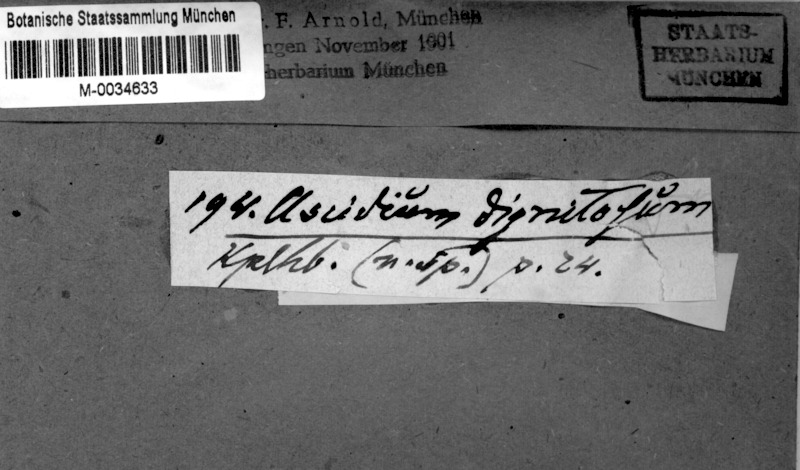 Botanische Staatssammlung München
M-0034633
. F. Arnold, München
ngen November 1901
herbarium München
STAATS-
HERBARIUM
MÜNCHEN
194. Ascidium
Kplhb. (n. sp.) p. 24.